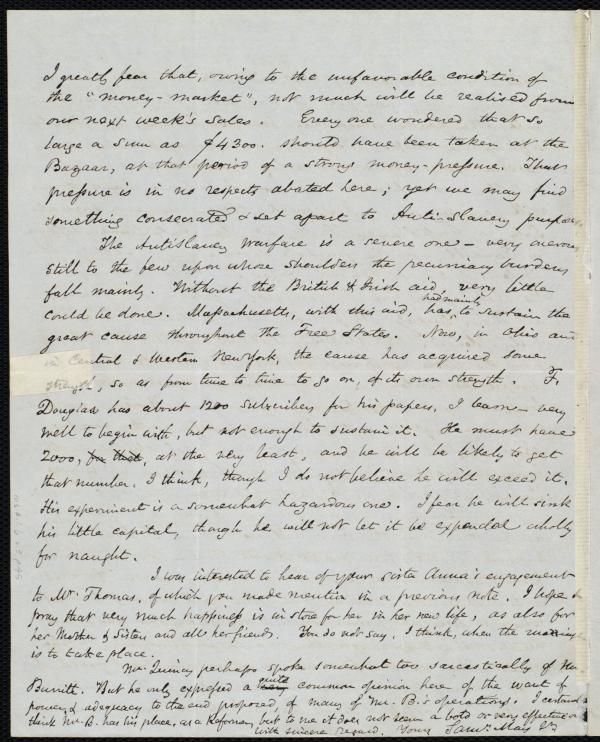 I greatly fear that, owing to the unfavorable condition of
the "money-market", not much will be realised from
our next week's sales. Every one wondered that so
large a sum as $4300. should have been taken at the
Bazaar, at that period of a strong money-pressure. That
pressure is in no respects abated here; yet we may find
something consecrated & set apart to Anti-Slavery purposes.
The Antislavery warfare is a severe one - very onerous
still to the few upon whose shoulders the pecuniary burdens
fall mainly. Without the British & Irish aid, very little
could be done. Massachusetts, with this aid, has had mainly to sustain the
great cause throughout the Free States. Now, in Ohio and
in Central & Western New York, the cause has acquired some
strength, so as from time to time to go on, of its own strength. F.
Douglass has about 1200 subscribers for his papers, I learn - very
well to begin with, but not enough to sustain it. He must have
2000, for that, at the very least, and he will be likely to get
that number, I think, though I do not believe he will exceed it.
His experiment is a somewhat hazardous one. I fear he will sink
his little capital, though he will not let it be expended wholly
for naught.
I was interested to hear of your sister Anna's engagement
to Mr. Thomas, of which you made mention in a previous note. I hope &
pray that very much happiness is in store for her in her new life, as also for
her Mother & Sisters and all her friends. You do not say, I think, when the marriage
is to take place.
Mr. Quincy perhaps spoke somewhat too sarcastically of Mr.
Burritt. But he only expressed a quite common opinion here of the want of
power, & adequacy to the end proposed, of many of Mr. B.'s operations. I certainly
think Mr. B. has his place, as a Reformer, but to me it does not seem a bold or very effective one
with sincere regard. Yours Saml. May Jr.